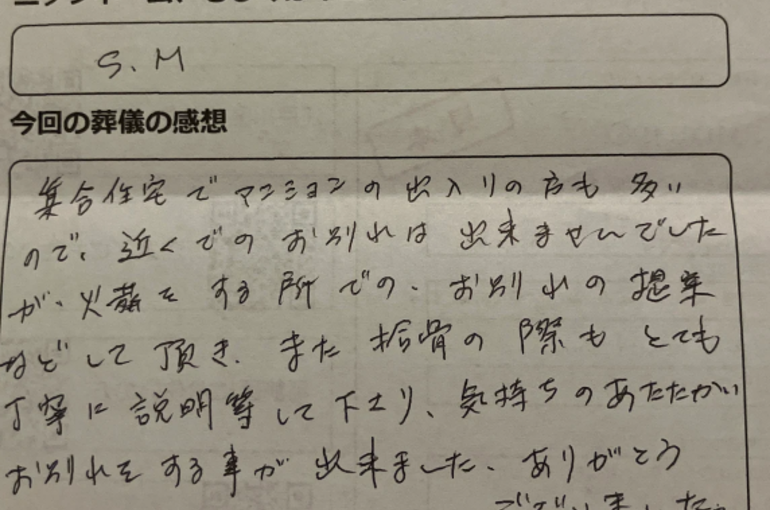 S. M
今回の葬儀の感想
集合住宅でマンションの出入りの方も多い
ので、近くでのお別れは出来ませんでした
が、火葬をする所での、お別れの提案
などして頂き、また拾骨の際もとても
丁寧に説明等して下さり、気持ちのあたたかい
お別れをする事が出来ました、ありがとう
ございました